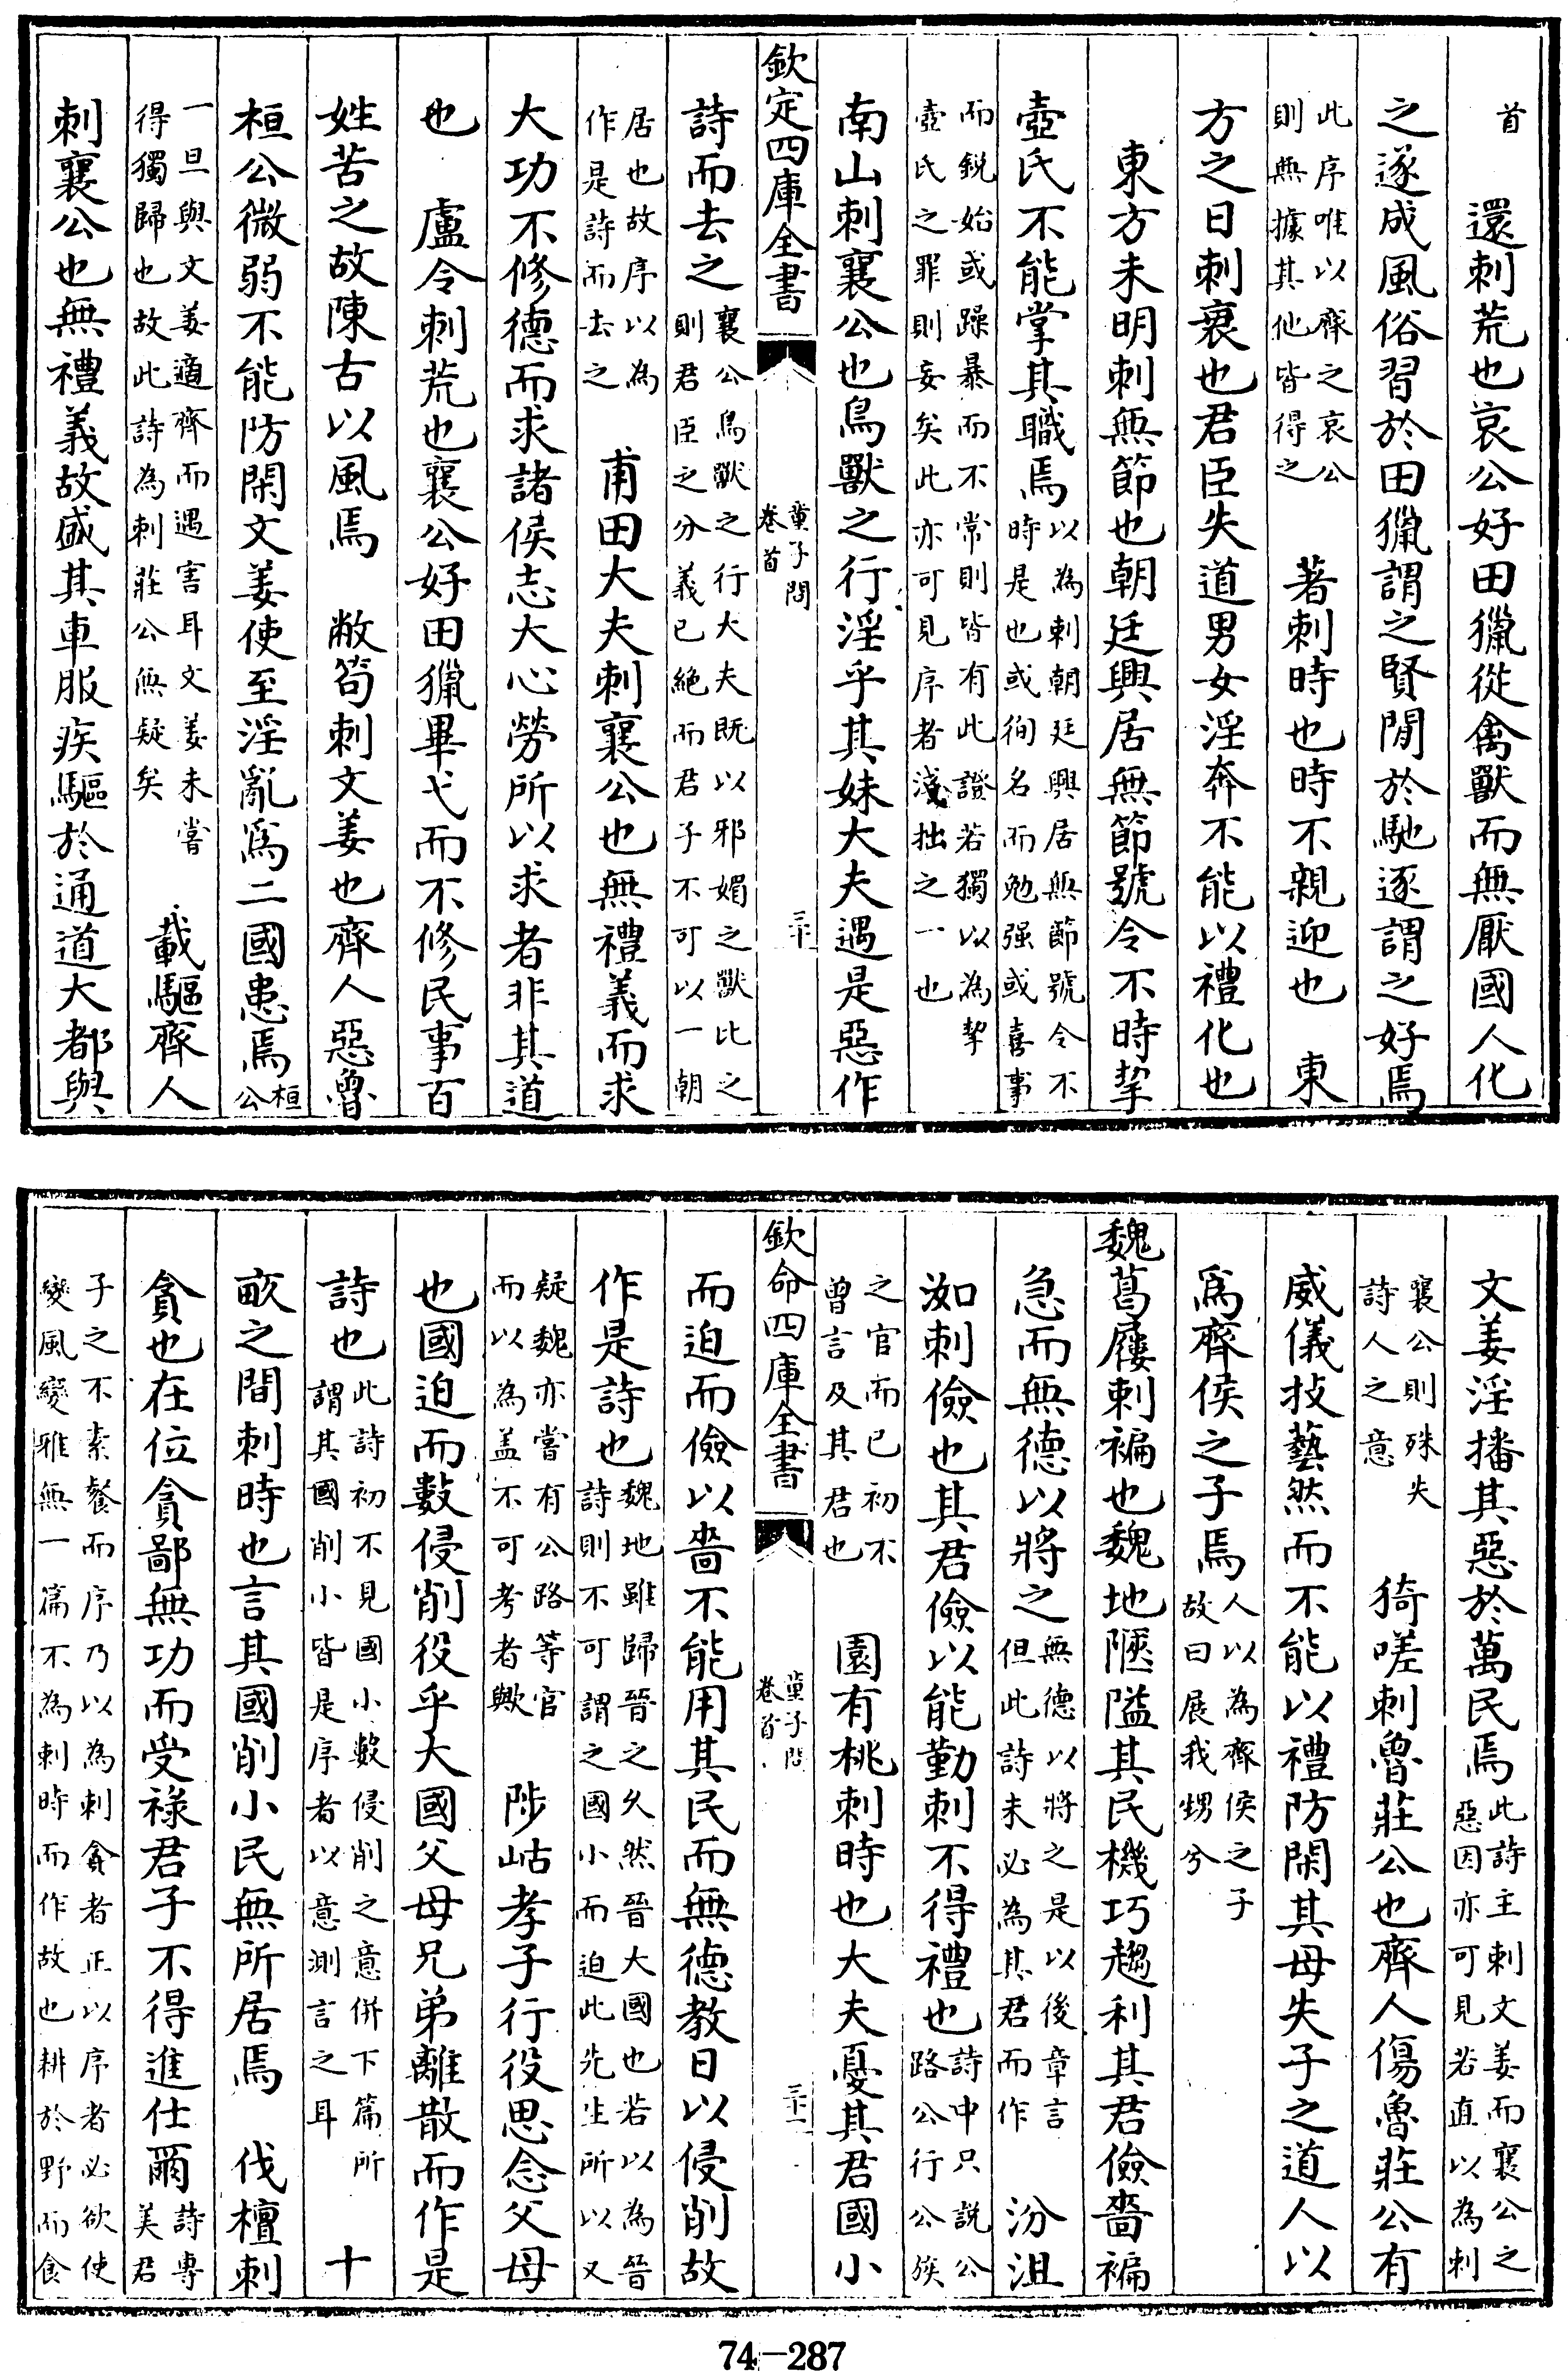 首　還刺荒也哀公好田獵從禽獸而無厭國人化
之遂成風俗習於田獵謂之賢閒於馳逐謂之好焉
此序唯以齊之哀公
則無據其他皆得之
著刺時也時不親迎也　東
方之日刺衰也君臣失道男女淫奔不能以禮化也
東方未明刺無節也朝廷興居無節號令不時挈
壺氏不能掌其職焉
以為刺朝廷興居無節號令不
時是也或徇名而勉强或喜事
而銳始或躁暴而不常則皆有此證若獨以為挈
壺氏之罪則妄矣此亦可見序者淺拙之一也
南山刺襄公也鳥獸之行淫乎其妹大夫遇是惡作
欽定四庫全書
童子問
卷首
三十
詩而去之
襄公鳥獸之行大夫既以邪媚之獸比之
則君臣之分義已絶而君子不可以一朝
居也故序以為
作是詩而去之
甫田大夫刺襄公也無禮義而求
大功不修德而求諸侯志大心勞所以求者非其道
也　盧令刺荒也襄公好田獵畢弋而不修民事百
姓苦之故陳古以風焉　敝笱刺文姜也齊人惡魯
桓公微弱不能防閑文姜使至淫亂為二國患焉
桓
公
一旦與文姜適齊而遇害耳文姜未嘗
得獨歸也故此詩為刺莊公無疑矣
載驅齊人
刺襄公也無禮義故盛其車服疾驅於通道大都與
文姜淫播其惡於萬民焉
此詩主刺文姜而襄公之
惡因亦可見若直以為刺
襄公則殊失
詩人之意
猗嗟刺魯莊公也齊人傷魯莊公有
威儀技藝然而不能以禮防閑其母失子之道人以
為齊侯之子焉
人以為齊侯之子
故曰展我甥兮
魏葛屨刺褊也魏地陿隘其民機巧趨利其君儉嗇褊
急而無德以將之
無德以將之是以後章言
但此詩未必為其君而作
汾沮
洳刺儉也其君儉以能勤刺不得禮也
詩中只説公
路公行公族
之官而已初不
曾言及其君也
園有桃刺時也大夫憂其君國小
欽命四庫全書
童子問
卷首
三十一
而迫而儉以嗇不能用其民而無德教日以侵削故
作是詩也
魏地雖歸晉之久然晉大國也若以為晉
詩則不可謂之國小而迫此先生所以又
疑魏亦嘗有公路等官
而以為盖不可考者歟
陟岵孝子行役思念父母
也國迫而數侵削役乎大國父母兄弟離散而作是
詩也
此詩初不見國小數侵削之意併下篇所
謂其國削小皆是序者以意測言之耳
十
畝之間刺時也言其國削小民無所居焉　伐檀刺
貪也在位貪鄙無功而受禄君子不得進仕爾
詩專
美君
子之不素餐而序乃以為刺貪者正以序者必欲使
變風變雅無一篇不為刺時而作故也耕於野而食
74—287